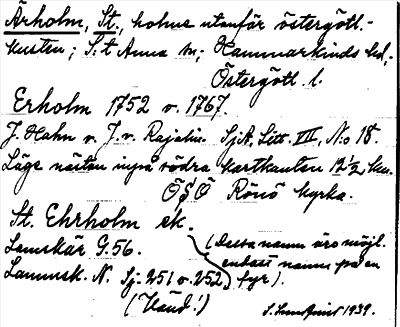 Ärholm, St., holme utanför östergötl.-
kusten; S:t Anna sn; Hammarkinds hd,-
Östergötl. l.
Erholm 1752 o. 1767.
J. Hahn o. J. v. Rajalin. SjA, Litt. III, No 18.
Läge nästan invid södra kartkanten 12½ km.
ÖSÖ Rönö kyrka.
St. Ehrholm sk.
Lamskär G. 56.
Lammsk. N. Sj. 251 o. 252
(Händ.!)
(Dessa namn äro möjl.
endast namn på en
fyr).
S. Lundquist 1939.